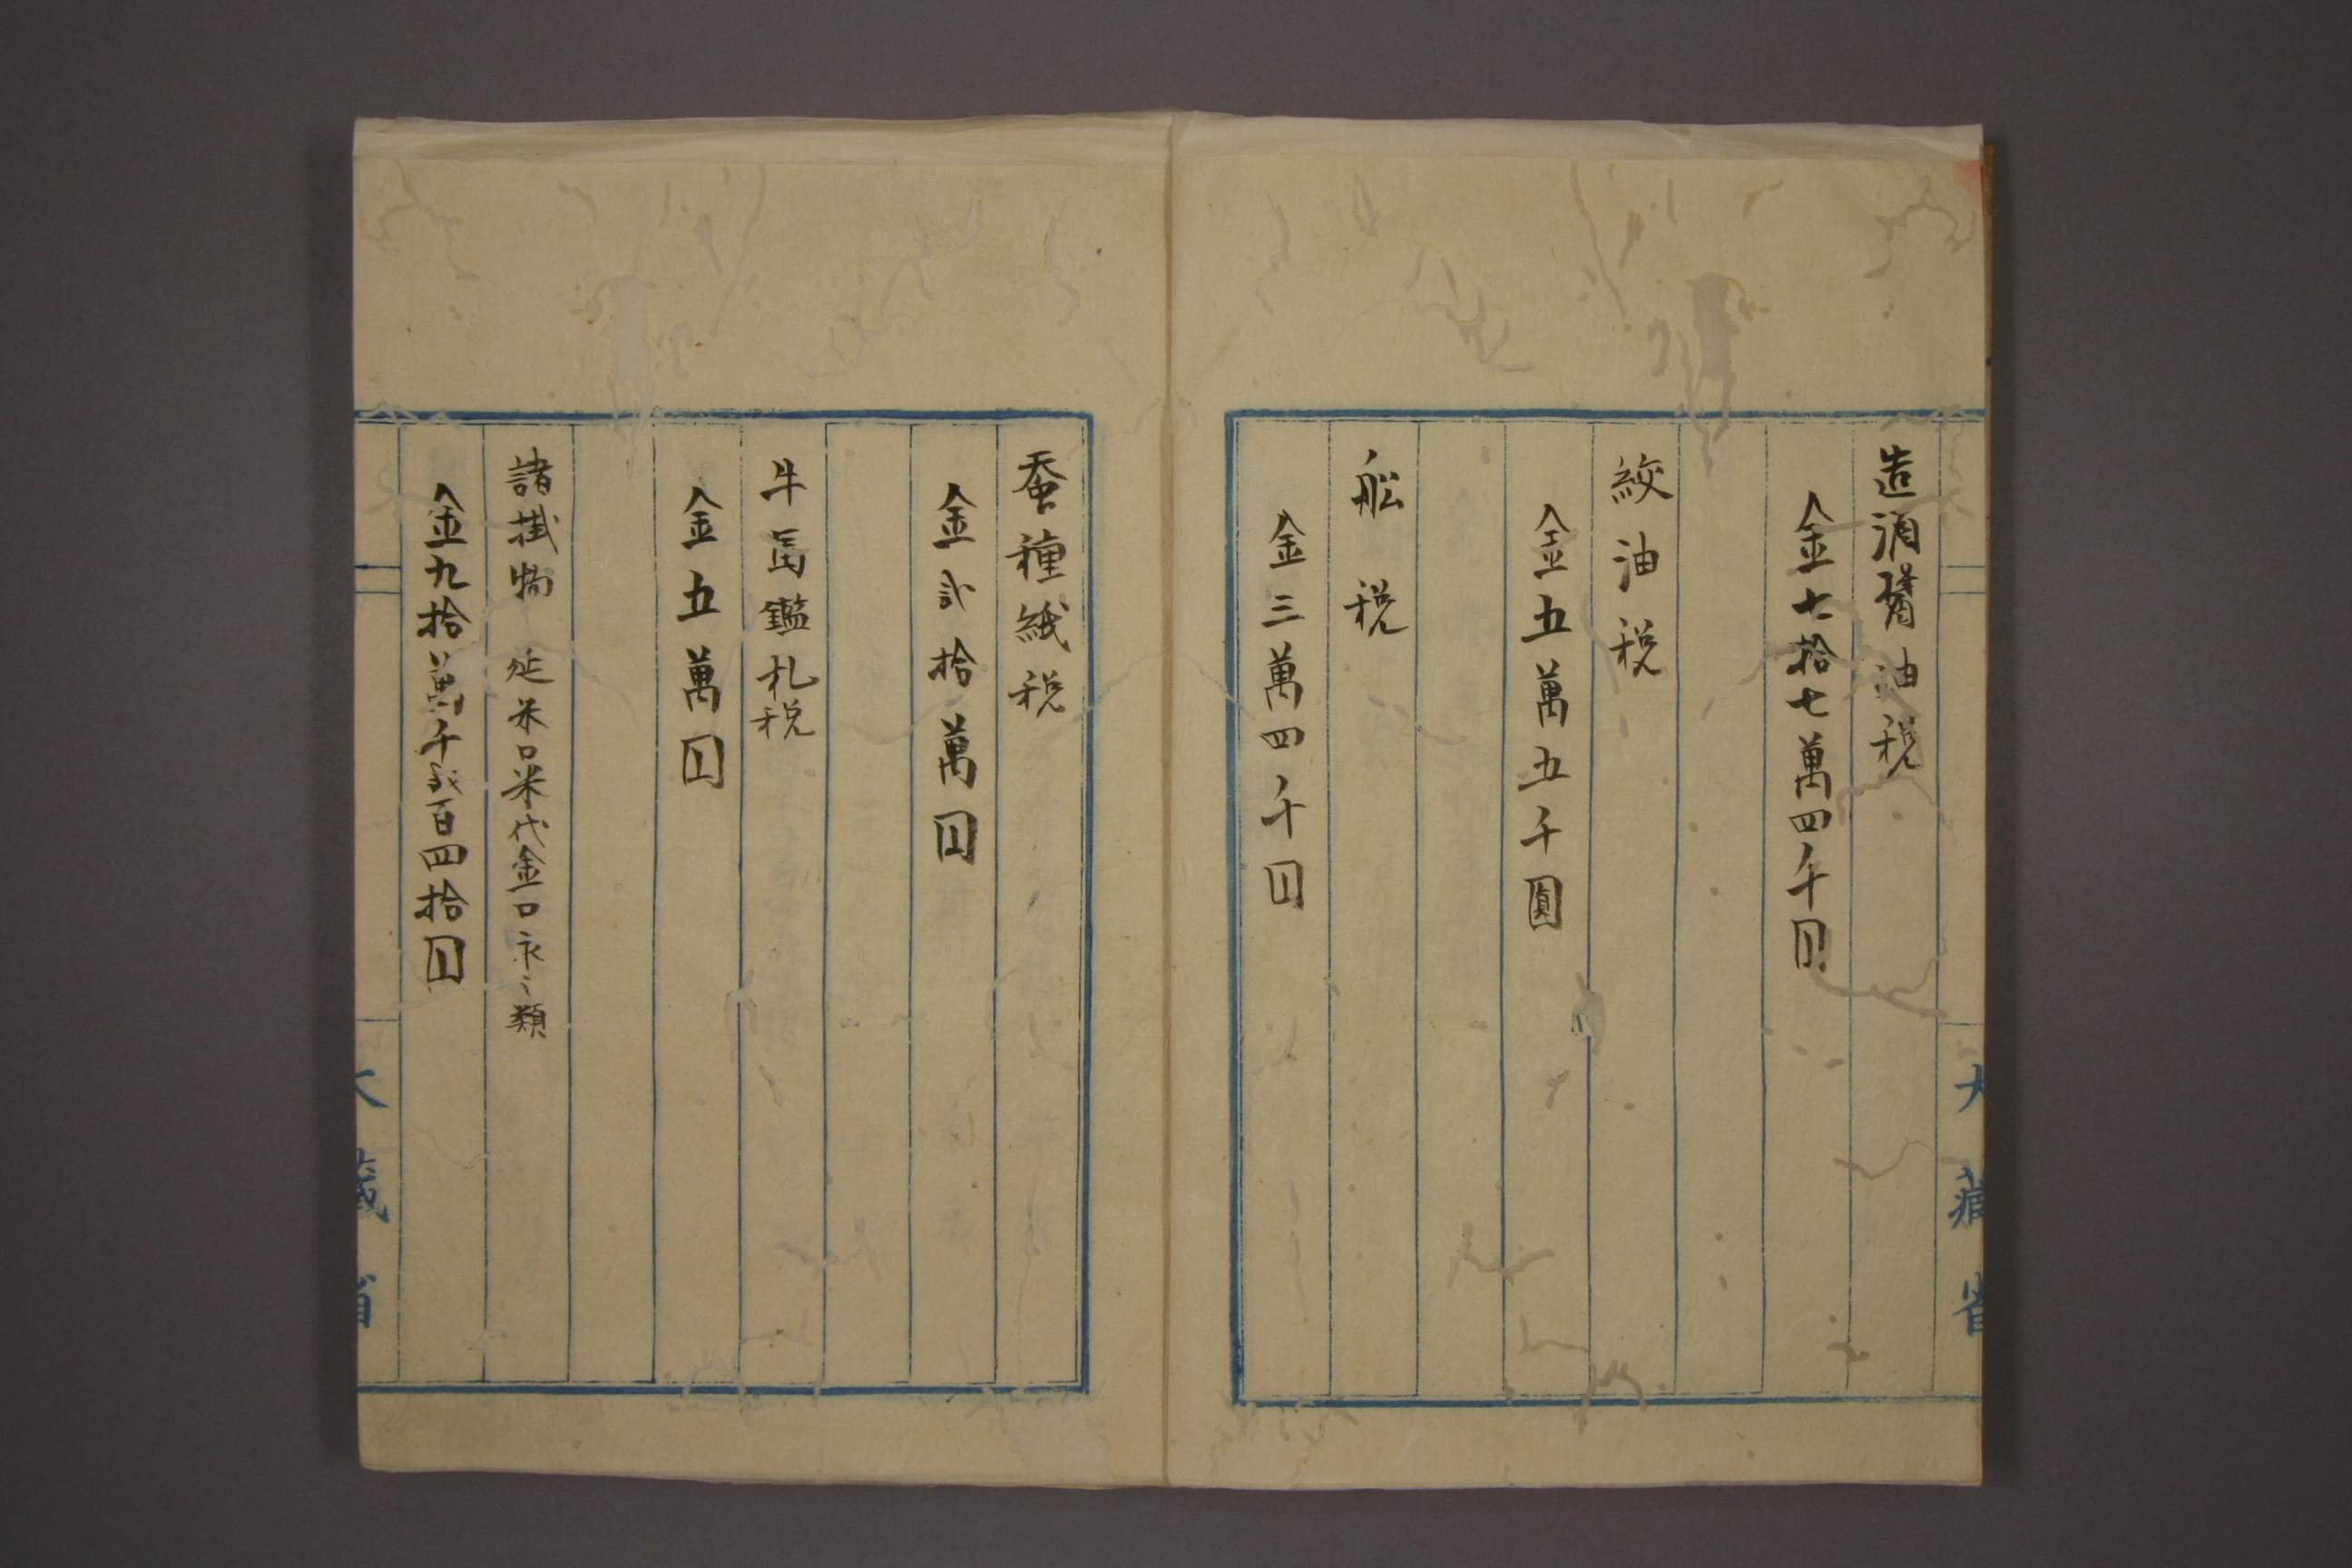 造酒醤油税
金七拾七萬四千円
絞油税
金五萬五千圓
舩税
金三萬四千円
蚕種紙税
金弐拾萬円
牛馬鑑札税
金五萬円
諸掛物 延米口米代金口永之類
金九拾萬千弐百四拾円
大藏省
大藏省